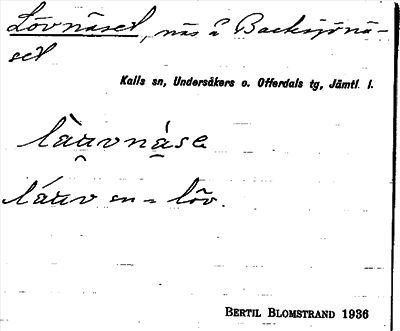 Lövnäset, näs å Backsjönä-
set
Kalls sn, Undersåkers o. Offerdals tg, Jämtl. l.
làuvnạ́se
láuv en = löv.
BERTIL BLOMSTRAND 1936